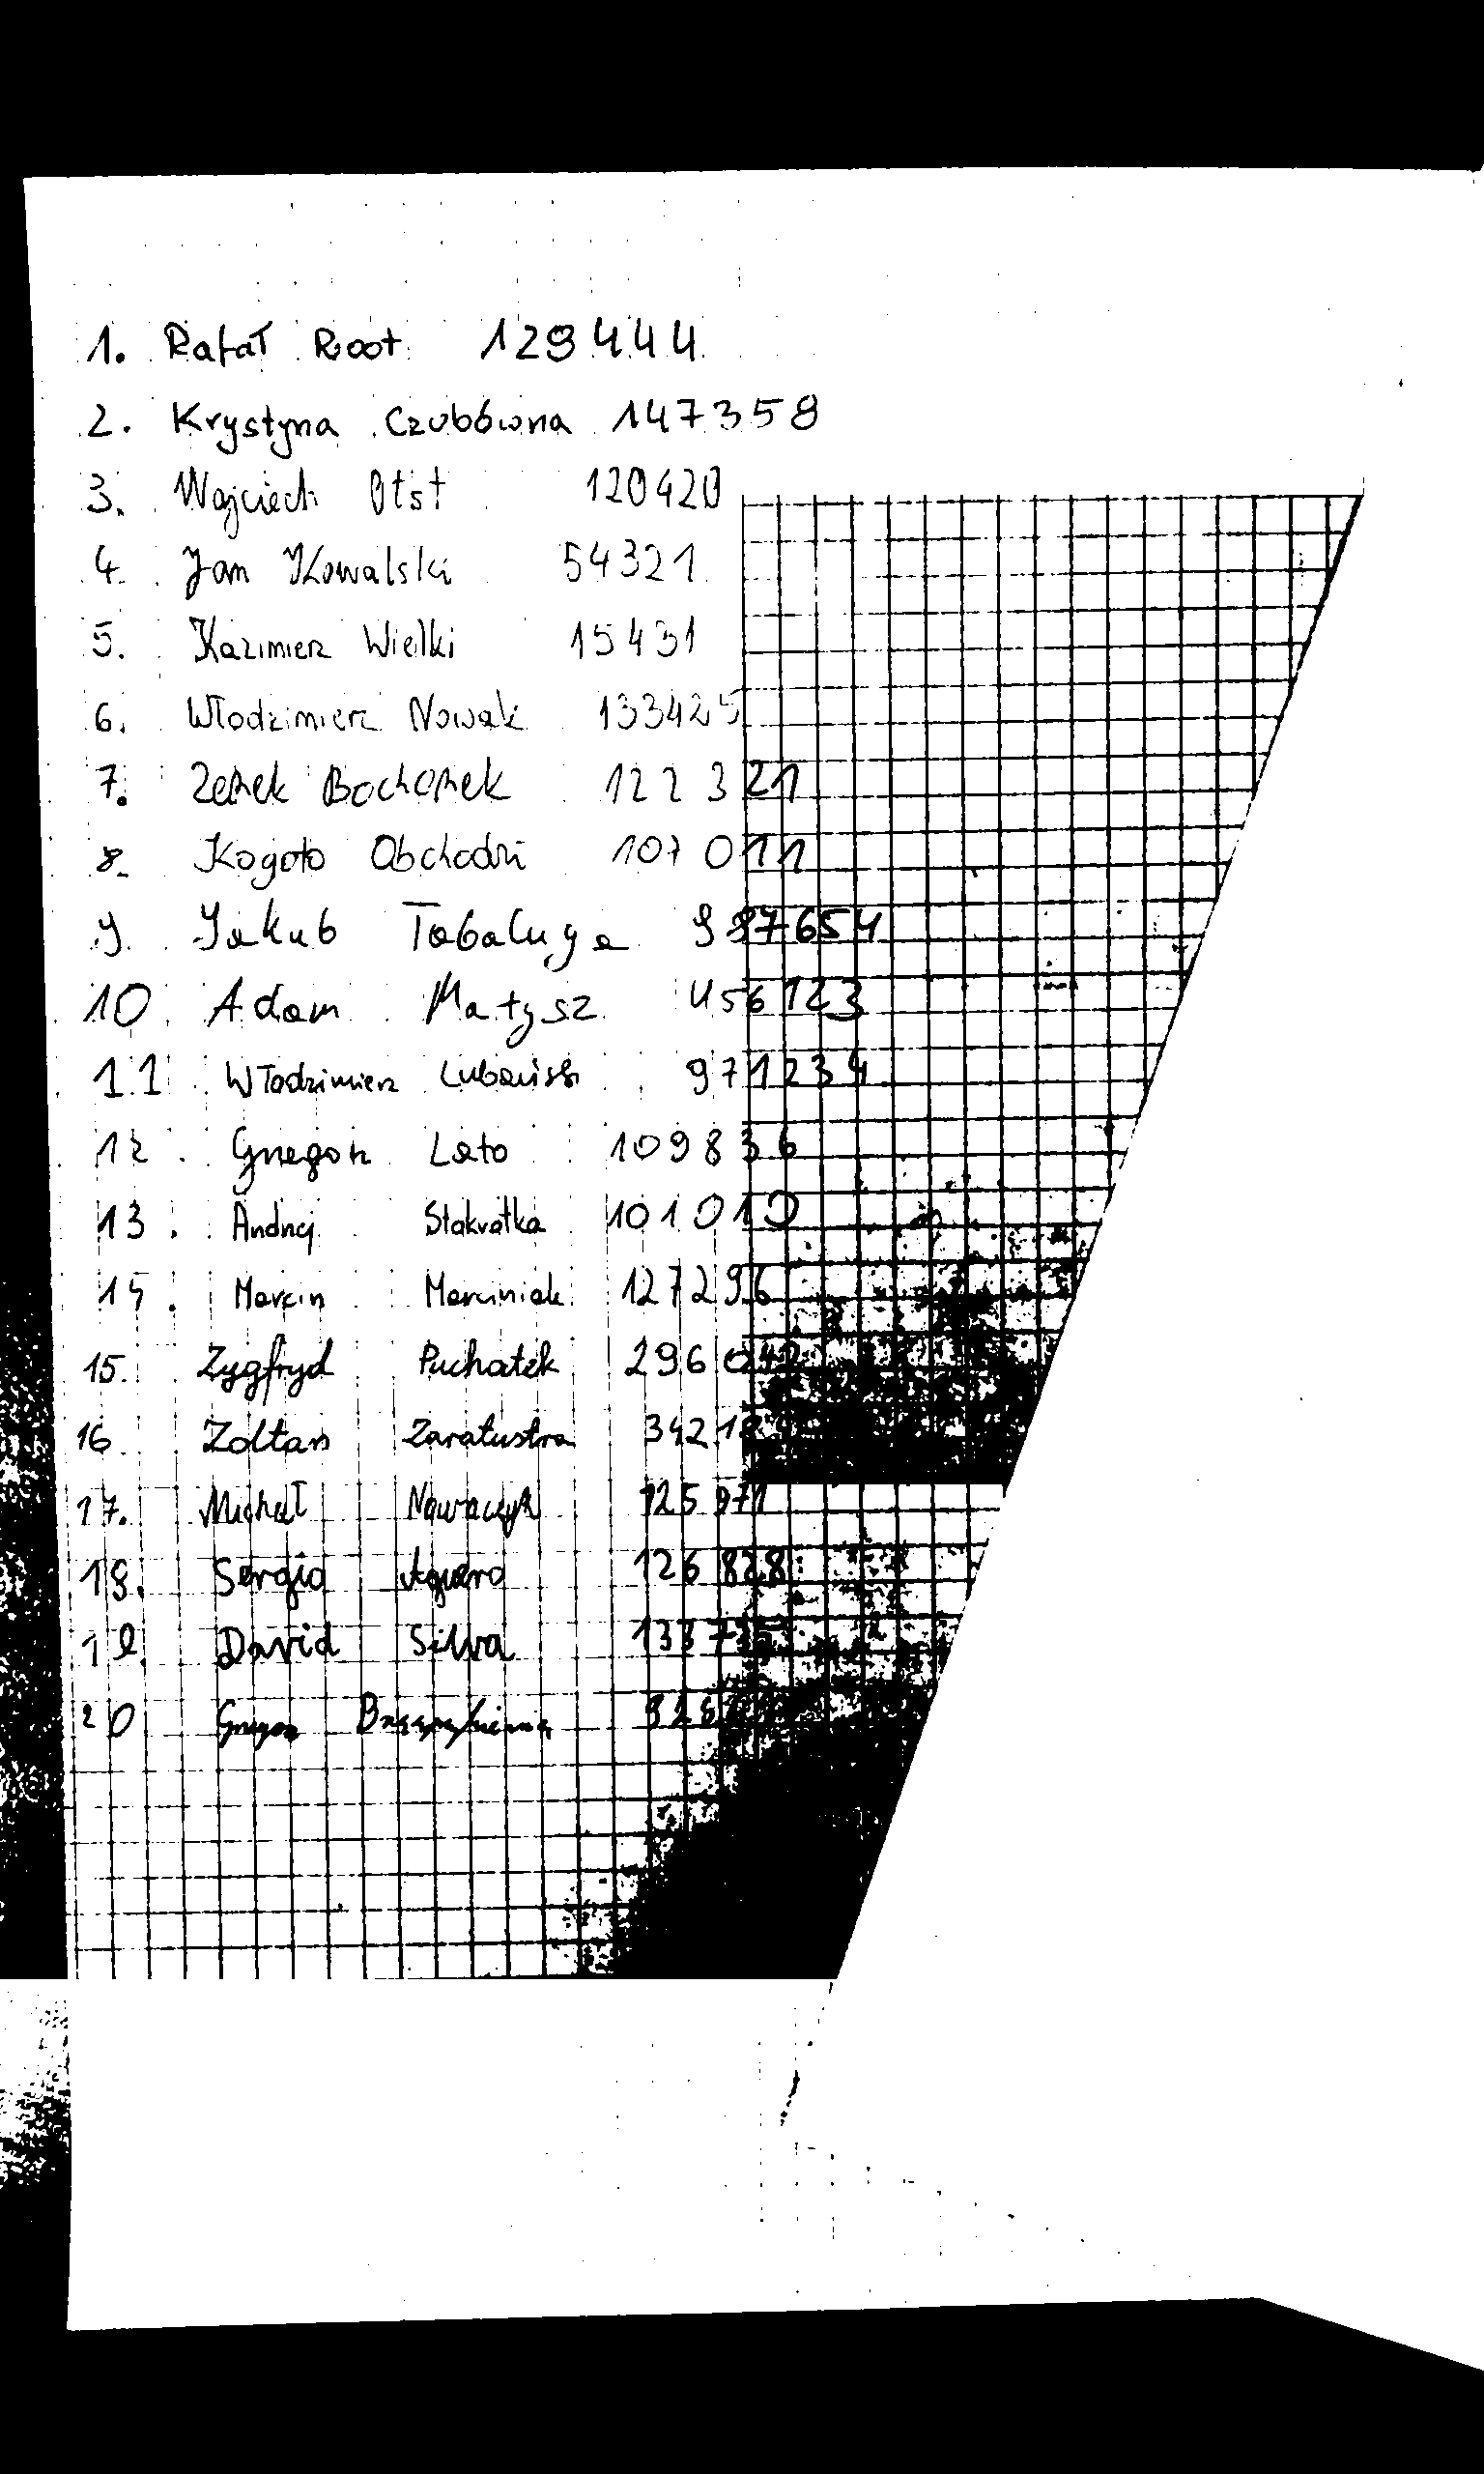 1. Rafał Root 129444
2. Krystyna Czubówna 147358
3. Wojciech Otst 120420
4. Jan Kowalski 54321
5. Kazimierz Wielki 15431
6. Włodzimierz Nowak 133425
7. Zenek Bochenek 122321
8. Kogoto Obchodzi 107011
9. Jakub Tabaluga 987654
10 Adam Matysz 456123
11 Włodzimierz Lubański 971234
12. Grzegorz Lato 109836
13. Andrzej Stokrotka 101010
14. Marcin Marciniak 127296
15. Zygfryd Puchatek
16. Zoltan Zaratustra
17. Michał Nowaczyk 125971
18. Sergio Aguero 126828
19. David Silva
20 Grzegorz